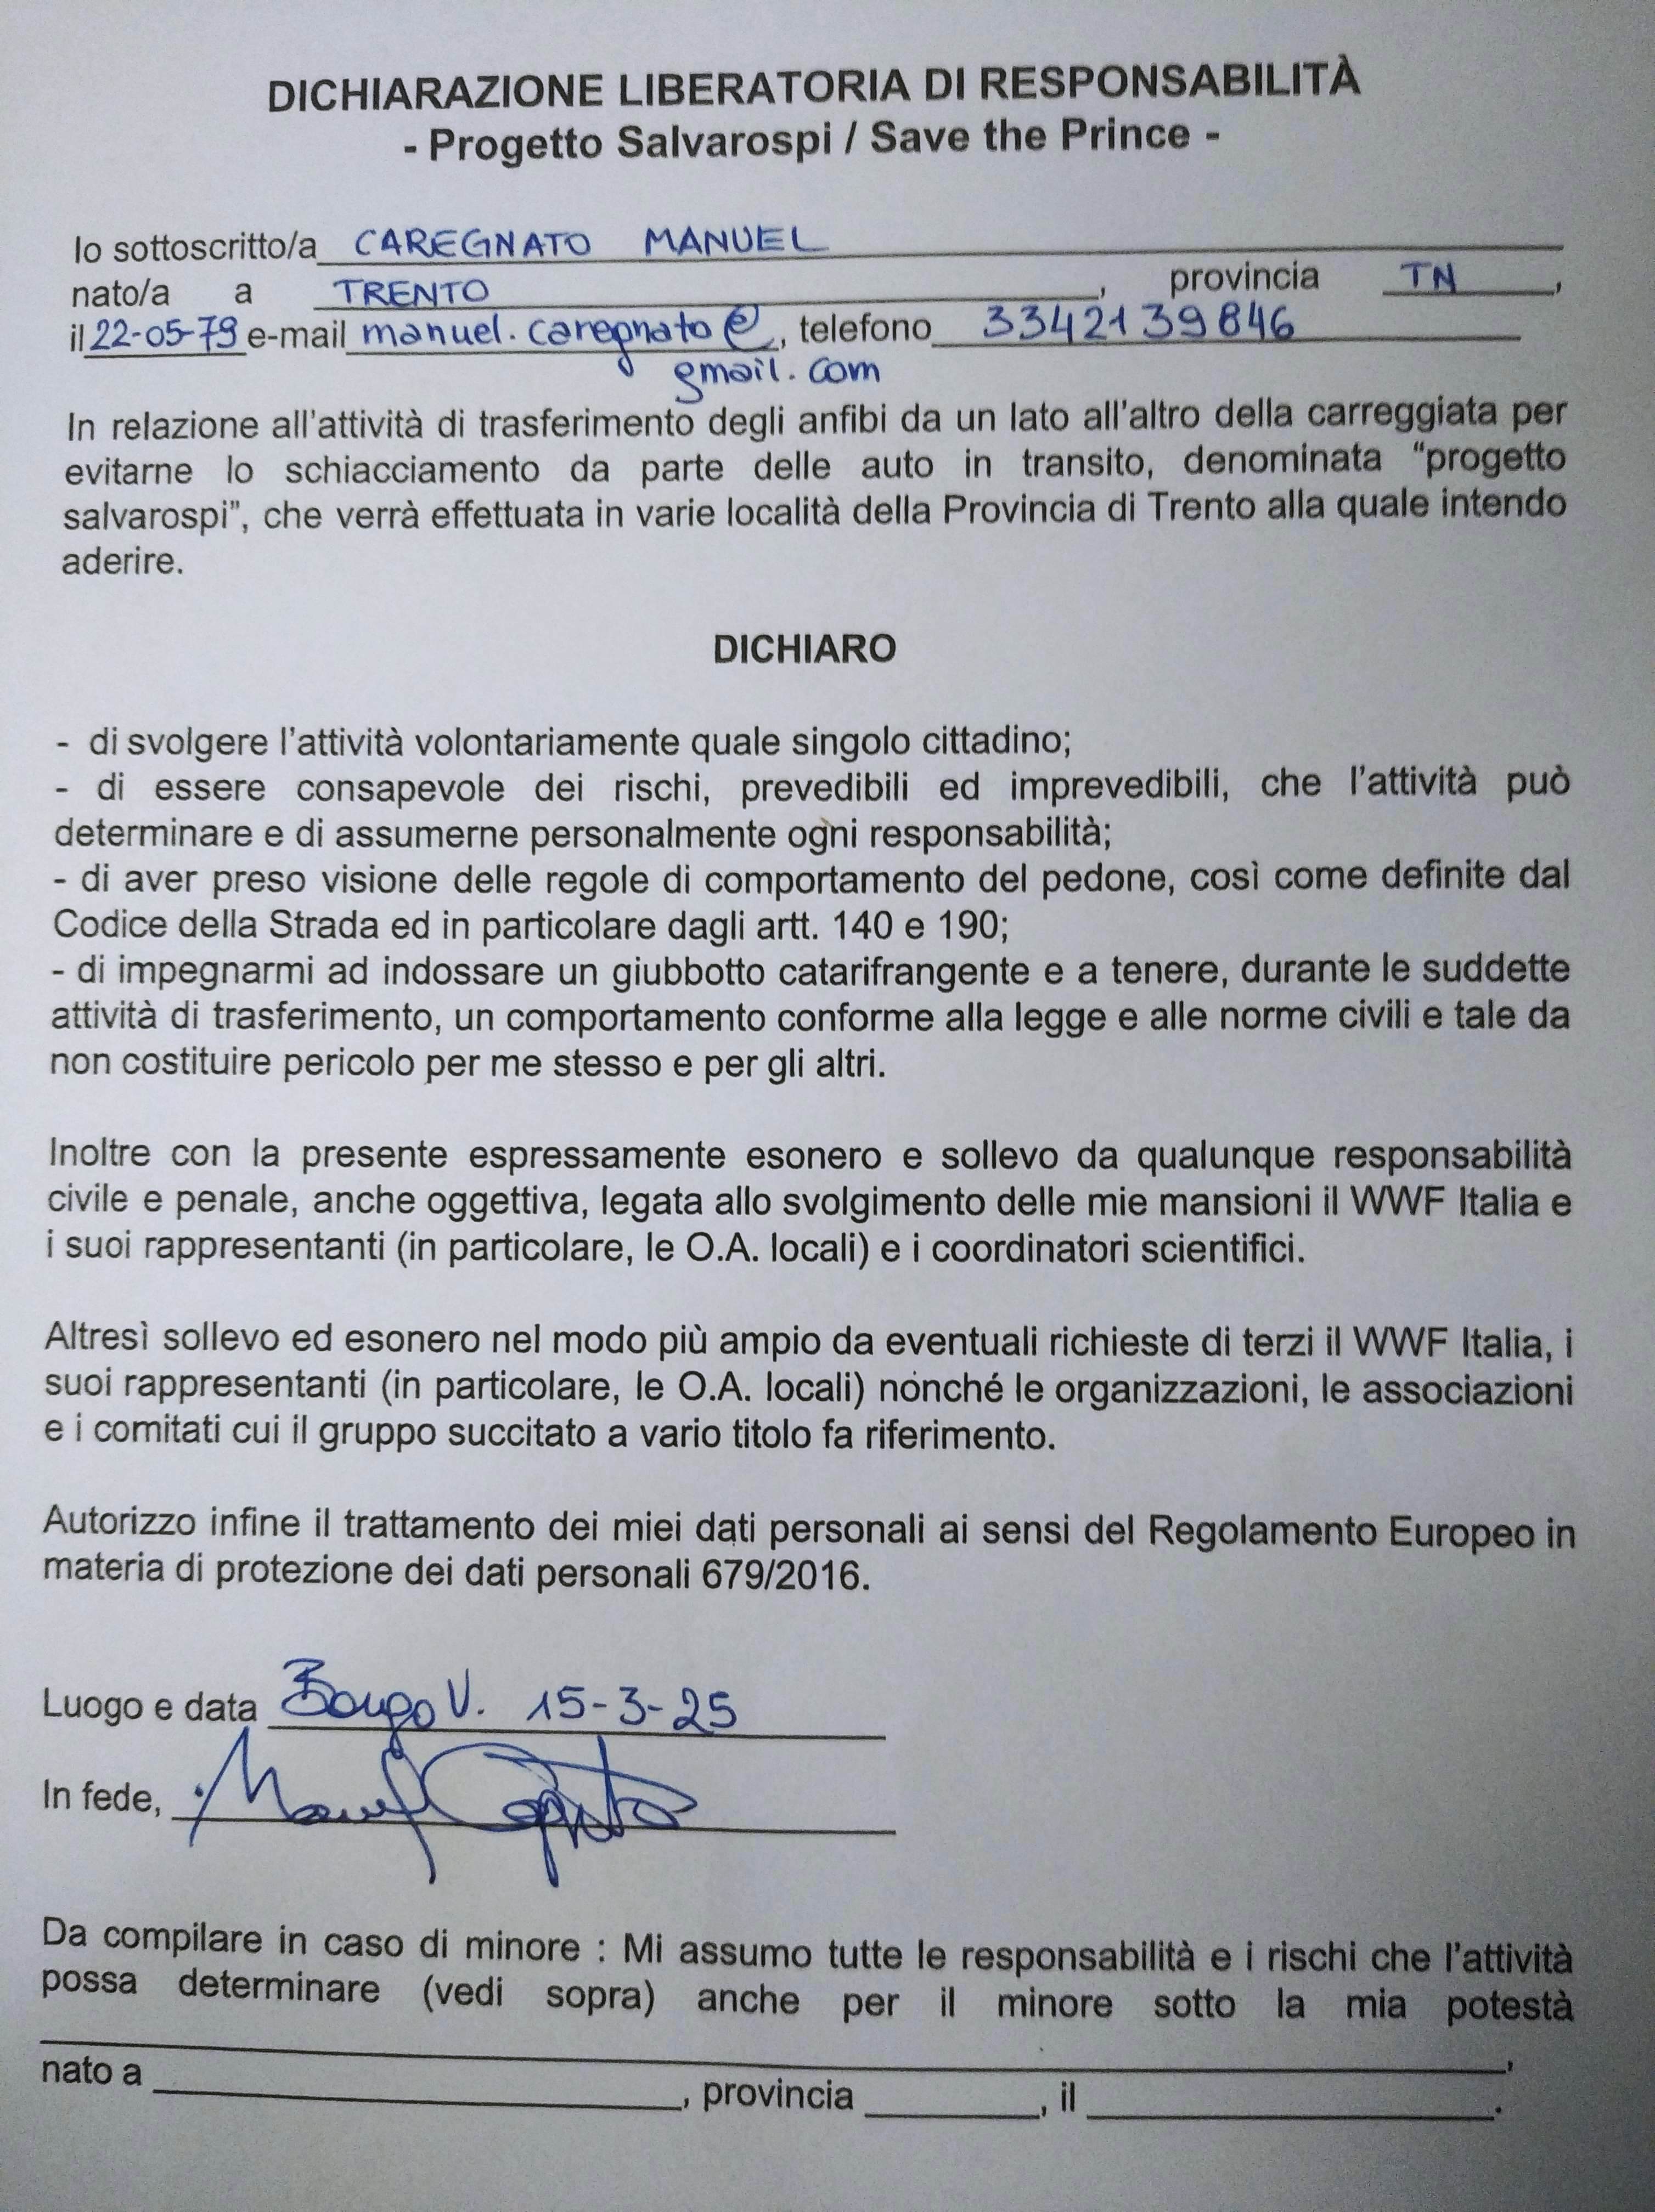 DICHIARAZIONE LIBERATORIA DI RESPONSABILITÀ
- Progetto Salvarospi / Save the Prince -
Io sottoscritto/a CAREGNATO MANUEL
nato/a a TRENTO, provincia TN,
il 22-05-79 e-mail manuel.caregnato@, telefono 3342139846
gmail.com
In relazione all'attività di trasferimento degli anfibi da un lato all'altro della carreggiata per
evitarne lo schiacciamento da parte delle auto in transito, denominata “progetto
salvarospi”, che verrà effettuata in varie località della Provincia di Trento alla quale intendo
aderire.
DICHIARO
- di svolgere l’attività volontariamente quale singolo cittadino;
- di essere consapevole dei rischi, prevedibili ed imprevedibili, che l’attività può
determinare e di assumerne personalmente ogni responsabilità;
- di aver preso visione delle regole di comportamento del pedone, così come definite dal
Codice della Strada ed in particolare dagli artt. 140 e 190;
- di impegnarmi ad indossare un giubbotto catarifrangente e a tenere, durante le suddette
attività di trasferimento, un comportamento conforme alla legge e alle norme civili e tale da
non costituire pericolo per me stesso e per gli altri.
Inoltre con la presente espressamente esonero e sollevo da qualunque responsabilità
civile e penale, anche oggettiva, legata allo svolgimento delle mie mansioni il WWF Italia e
i suoi rappresentanti (in particolare, le O.A. locali) e i coordinatori scientifici.
Altresì sollevo ed esonero nel modo più ampio da eventuali richieste di terzi il WWF Italia, i
suoi rappresentanti (in particolare, le O.A. locali) nonché le organizzazioni, le associazioni
e i comitati cui il gruppo succitato a vario titolo fa riferimento.
Autorizzo infine il trattamento dei miei dati personali ai sensi del Regolamento Europeo in
materia di protezione dei dati personali 679/2016.
Luogo e data Borgo V. 15-3-25
In fede, Manuel Caregnato
Da compilare in caso di minore : Mi assumo tutte le responsabilità e i rischi che l’attività
possa determinare (vedi sopra) anche per il minore sotto la mia potestà
,
nato a , provincia , il .